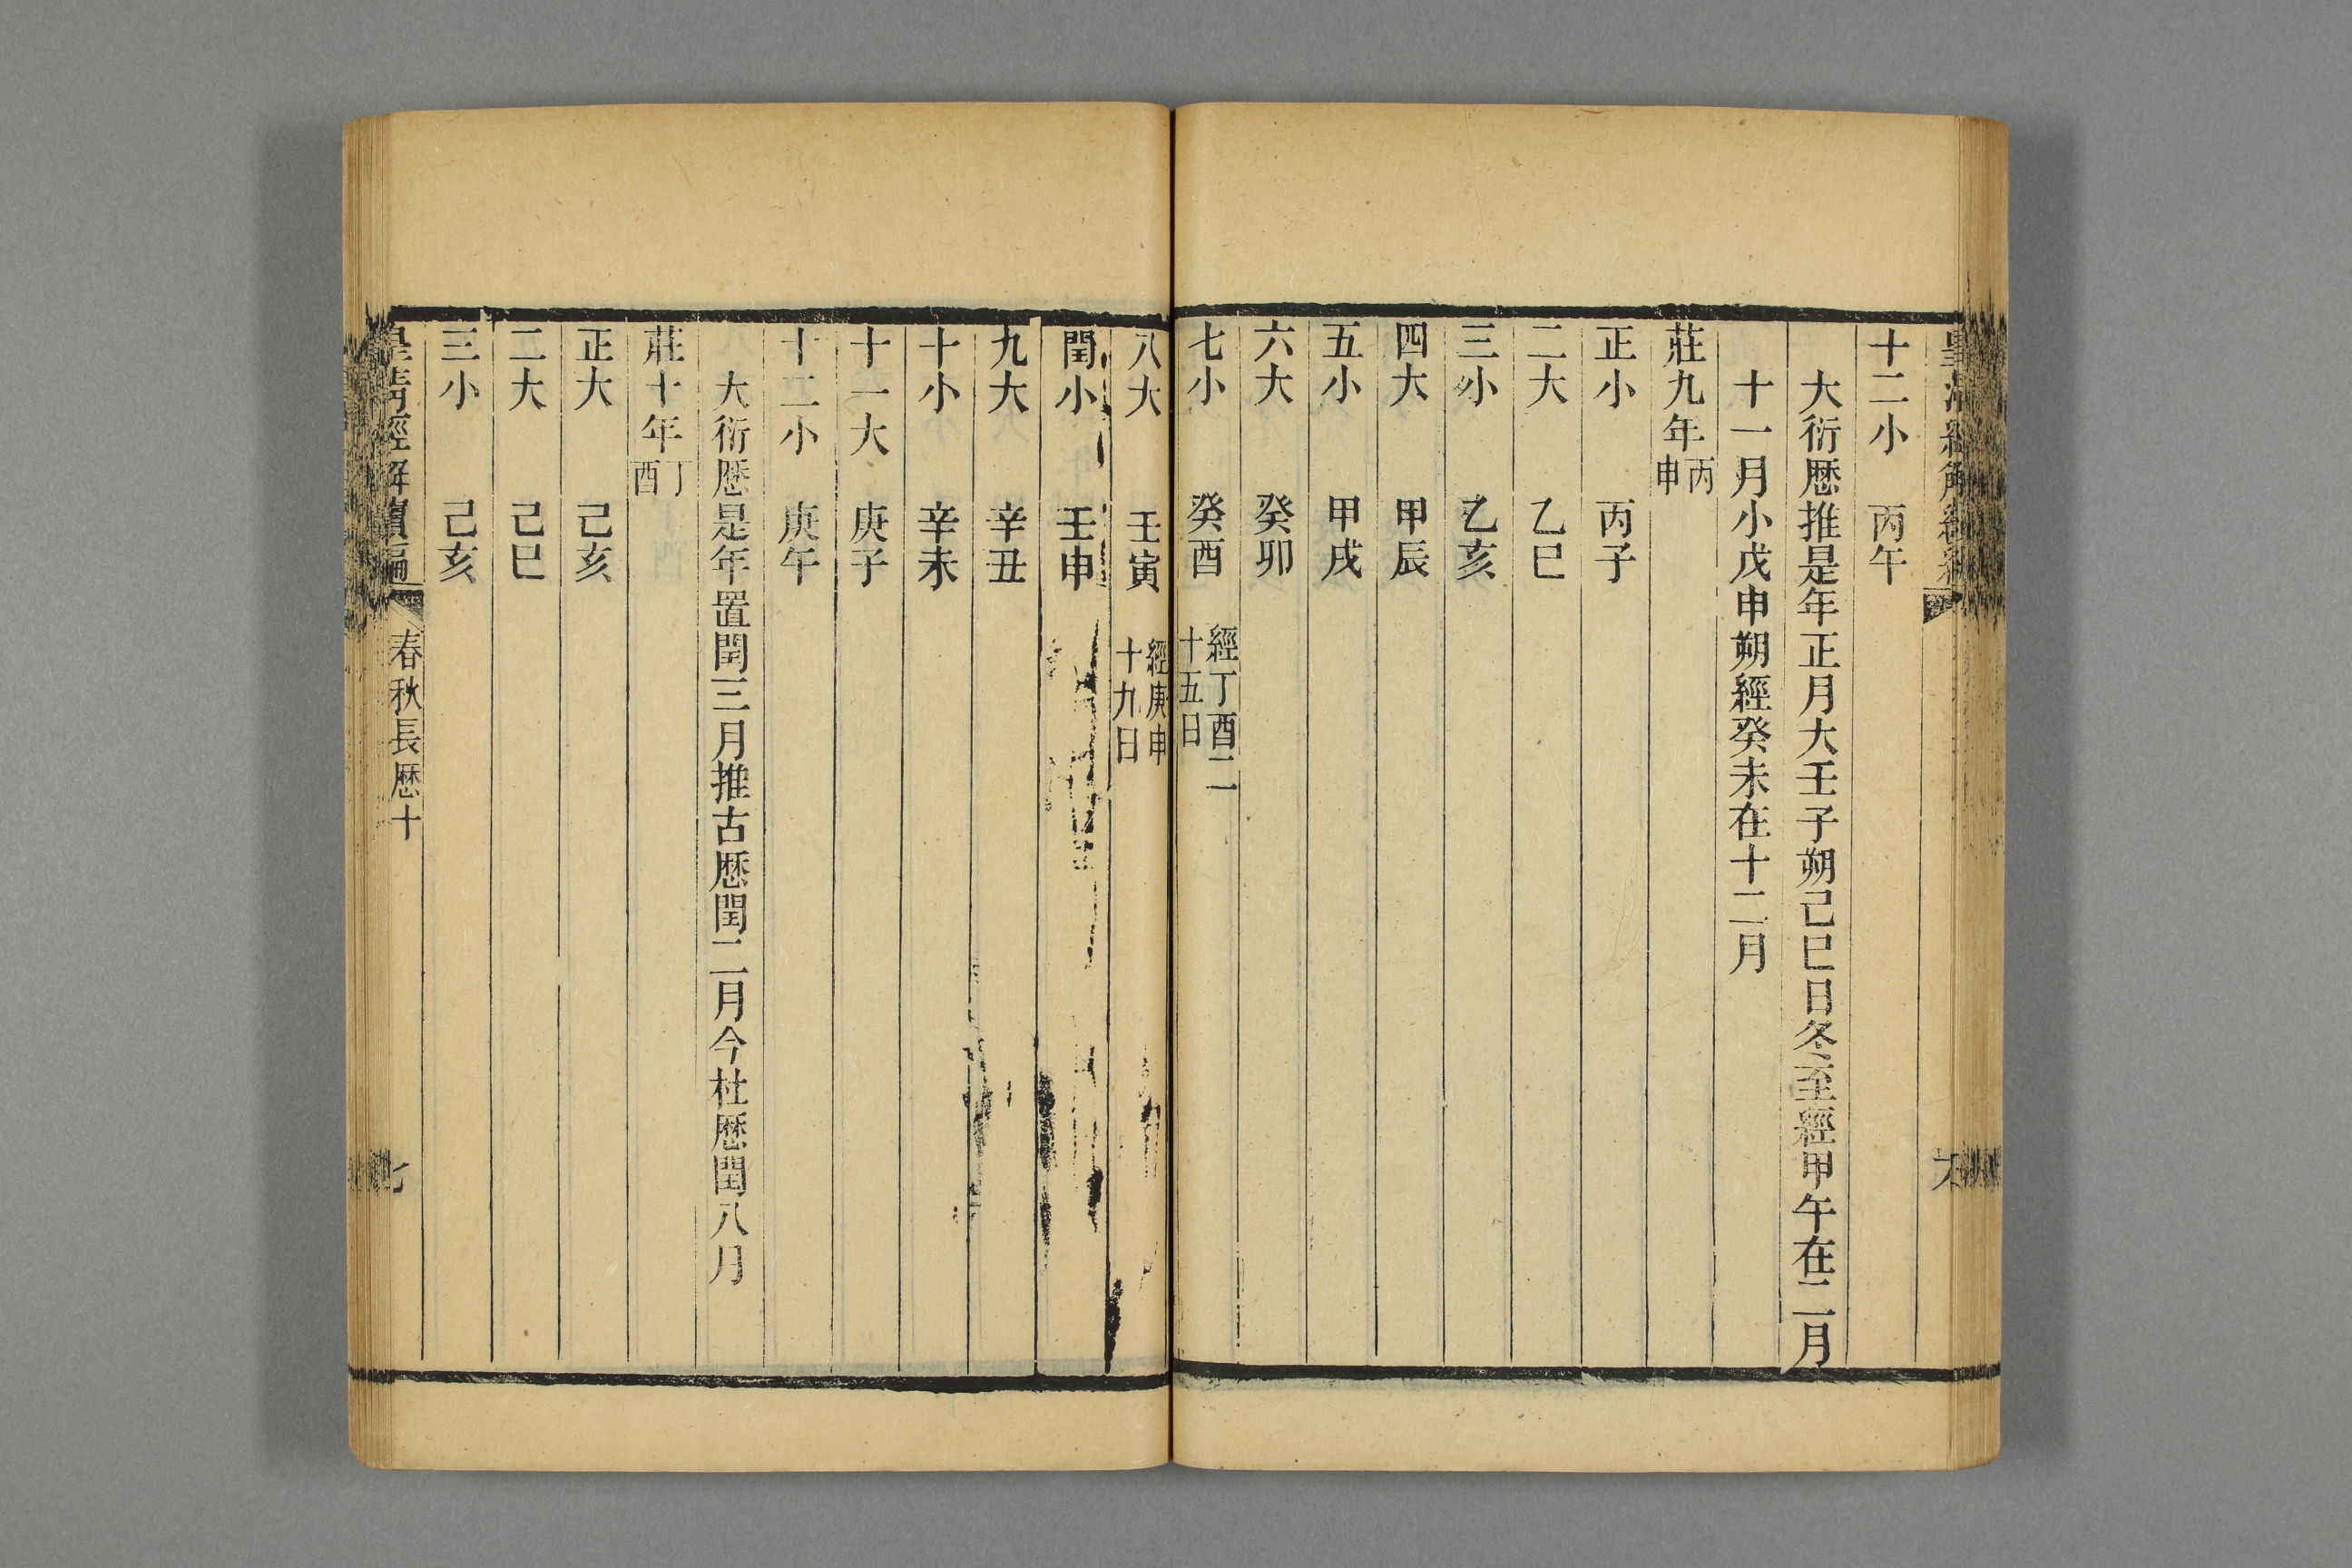 十二小　丙午
大衍厯推是年正月大壬子朔己巳日冬至經甲午在二月
十一月小戊申朔經癸未在十二月
莊九年丙申
正小　丙子
二大　乙巳
三小　乙亥
四大　甲辰
五小　甲戌
六大　癸卯
七小　癸酉　經丁酉二十五日
八大　壬寅　經庚申十九日
閏小　壬申
九大　辛丑
十小　辛未
十一大　庚子
十二小　庚午
大衍厯是年置閏三月推古厯閏二月今杜厯閏八月
莊十年丁酉
正大　己亥
二大　己巳
三小　己亥
皇清經解續編　春秋長厯十